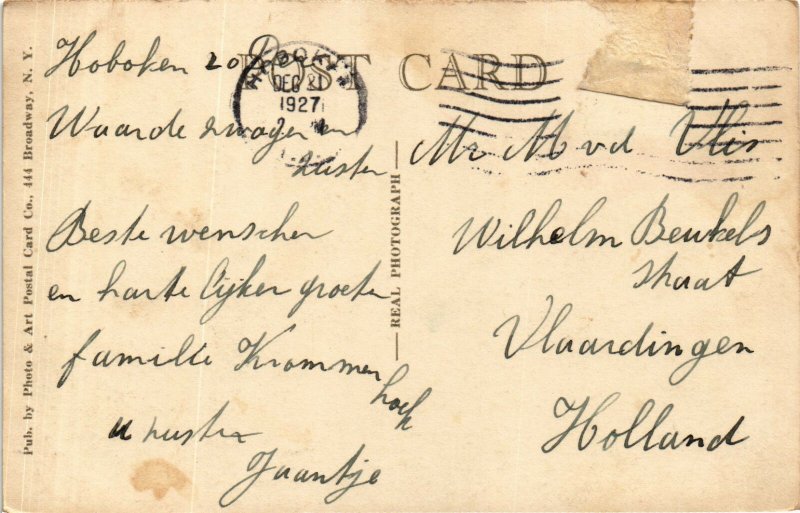 POST CARD
HOBOKEN
DEC 21
1927
Hoboken 20
Waarde zwager en
zuster
Beste wenschen
en hartelijken groeten
familie Krommen
hoek
u zuster
Jaantje
Mr M v d Vlis
Wilhelm Beukels
straat
Vlaardingen
Holland
REAL PHOTOGRAPH
Pub. by Photo & Art Postal Card Co., 444 Broadway, N. Y.